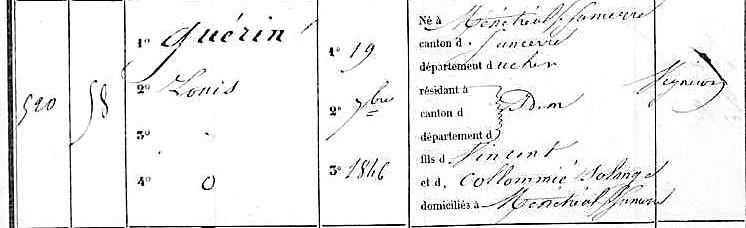 520 58
1º Guérin
2º Louis
3º
4º 0
1º 19
2º 7bre
3º 1846
Né à Ménétréol s/Sancerre
canton d. Sancerre
département du cher
résidant à
canton d Idem
département d
fils d. Vincent
et d. Collommié Solange
domiciliés à Ménétréol s/Sancerre
Vigneron